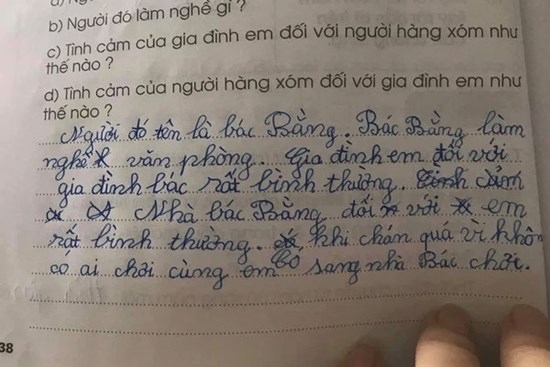 b) Người đó làm nghề gì ?
c) Tình cảm của gia đình em đối với người hàng xóm như
thế nào ?
d) Tình cảm của người hàng xóm đối với gia đình em như
thế nào ?
Người đó tên là bác Bằng. Bác Bằng làm
nghề văn phòng. Gia đình em đối với
gia đình bác rất bình thường.
Nhà bác Bằng đối với em
rất bình thường. khi chán quá vì khôn
có ai chơi cùng em có sang nhà Bác chơi.
38